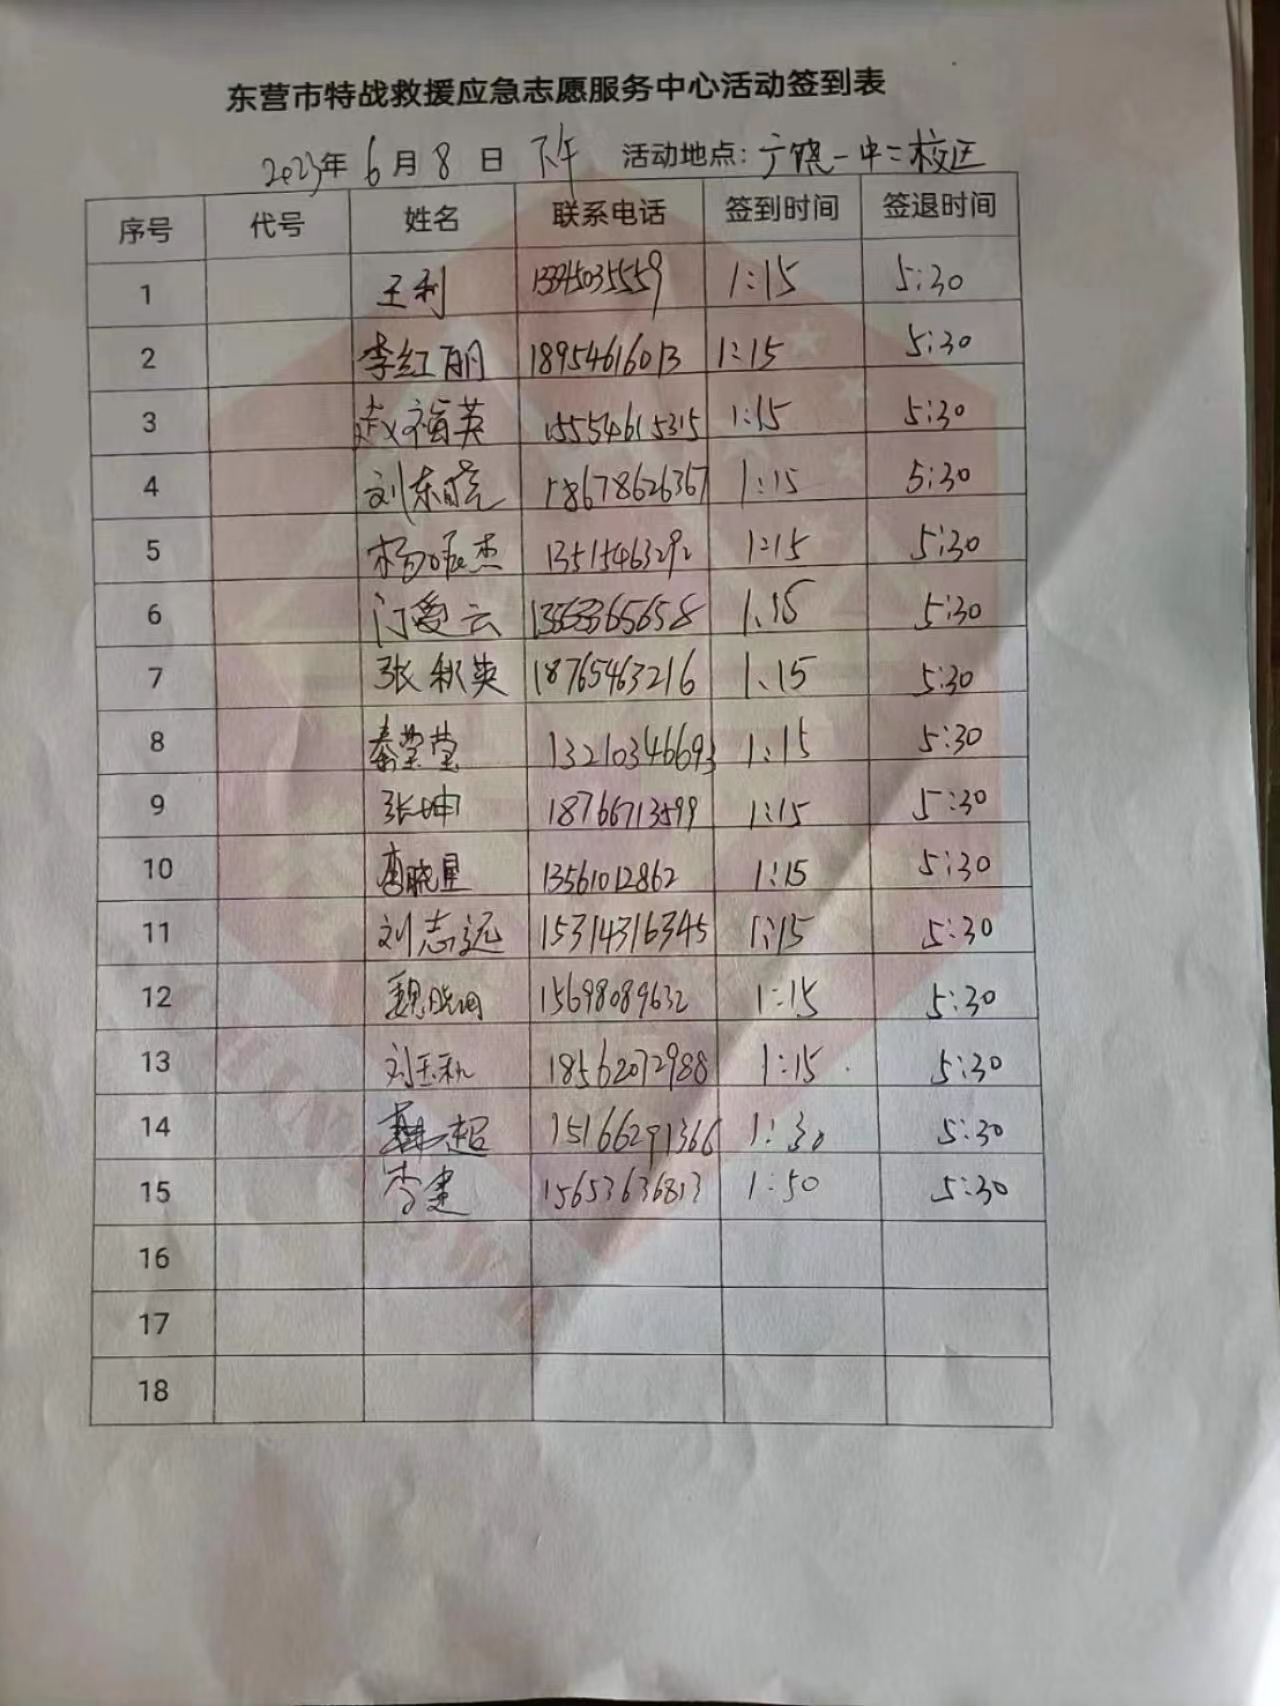 东营市特战救援应急志愿服务中心活动签到表
2023年 6月 8日 下午 活动地点：广饶一中二校区
序号 代号 姓名 联系电话 签到时间 签退时间
1 王利 13345035559 1:15 5:30
2 李红丽 18954616013 1:15 5:30
3 赵福英 15554615315 1:15 5:30
4 刘东晓 18678626367 1:15 5:30
5 杨 杰 13515463292 1:15 5:30
6 门爱云 13563365658 1.15 5:30
7 张秋英 18765463216 1.15 5:30
8 秦莹莹 13210346693 1:15 5:30
9 张坤 18766713599 1:15 5:30
10 李晓星 13561012862 1:15 5:30
11 刘志远 15314316345 1:15 5:30
12 魏晓 15698089632 1:15 5:30
13 刘玉 18562072988 1:15 5:30
14 超 15166291366 1:30 5:30
15 李建 15653636813 1:50 5:30
16
17
18